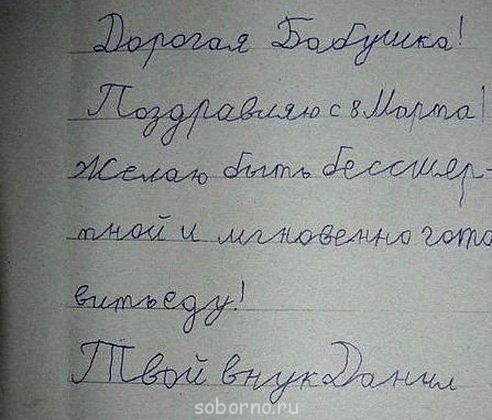 Дорогая Бабушка!
Поздравляю с 8 Марта!
Желаю быть бессмер-
тной и мгновенно гото
вить еду!
Твой внук Данил
soborno.ru